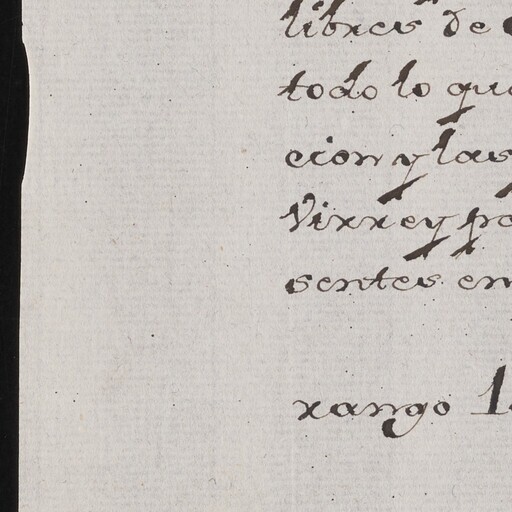 libres de
todo lo qu
cion y las
Virrey p
sentes en
rango 1